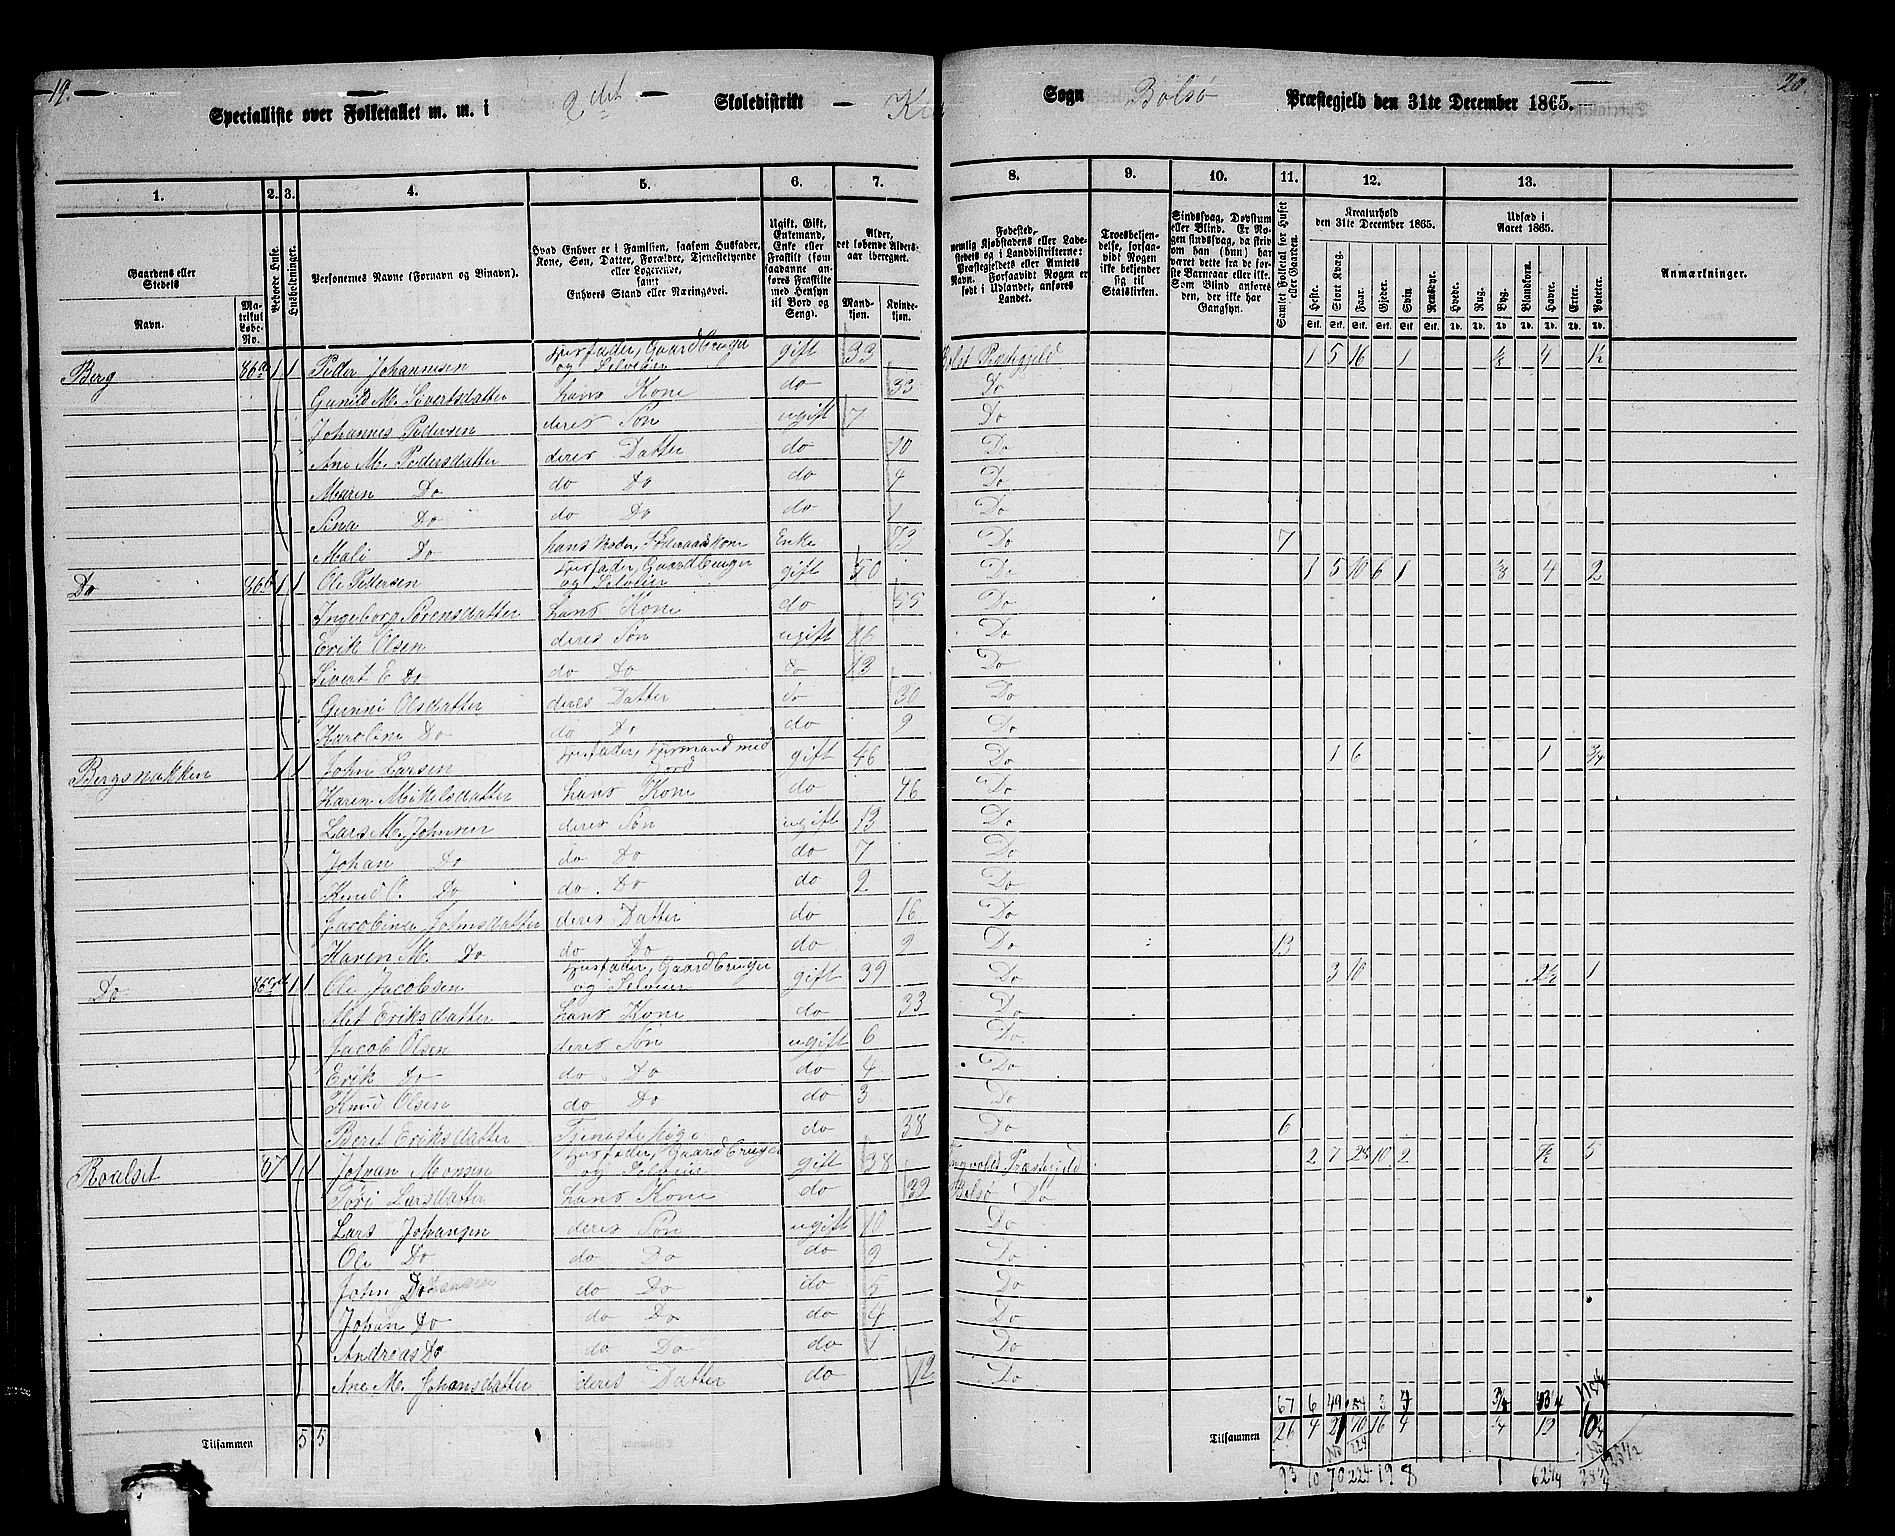 19.
20
Specialliste over Folketallet m. m. i 2det Skoledistrikt
Sogn Bolsø Præstegjeld den 31te December 1865.
1. 2. 3. 4. 5. 6. 7. 8. 9. 10. 11. 12. 13.
Gaardens eller Stedets
Navn.
Matrikul Løbe-No.
Beboede Huse.
Husholdninger.
Personernes Navne (Fornavn og Binavn).
Hvad Enhver er i Familien, saasom Husfader, Kone, Søn, Datter, Forældre, Tjenestetyende eller Logerende, samt Enhvers Stand eller Næringsvei.
Ugift, Gift, Enkemand, Enke eller Fraskilt (som saadanne anføres Fraskilte med Hensyn til Bord og Seng).
Alder, det løbende Aldersaar iberegnet.
Mandkjøn. Kvindekjøn.
Fødested, nemlig Kjøbstadens eller Ladestedets og i Landdistrikterne: Præstegjeldets eller Amtets Navn. Forsaavidt Nogen er født i Udlandet, anføres Landet.
Troesbekjendelse, forsaavidt Nogen ikke bekjender sig til Statskirken.
Sindssvag, Døvstum eller Blind. Er Nogen sindssvag, da skriv om han (hun) har været dette fra de første Barneaar eller ikke. Som Blind anføres den, der ikke har Gangsyn.
Samlet Folketal for Huset eller Gaarden.
Kreaturhold den 31te December 1865.
Heste. Stort Kvæg. Faar. Gjeder. Svin. Rensdyr.
Udsæd i Aaret 1865.
Hvede. Rug. Byg. Blandkorn. Havre. Erter. Poteter.
Anmærkninger.
Berg 86a 1 1 Peder Johannesen Husfader, Gaardbruger og Selveier gift 33 Bolsø Præstegjeld 1 5 16 1 4 1½
Gunild M. Sivertsdatter hans Kone do 33 Do
Johannes Pedersen deres Søn ugift 7 Do
Ane M. Pedersdatter deres Datter do 10 Do
Maren Do do Do do 4 Do
Sina Do do Do do 1 Do
Mali Do hans Moder, Føderaadskone Enke 73 Do 7
Do 86b 1 1 Ole Pedersen Husfader, Gaardbruger og Selveier gift 50 Do 1 5 10 6 1 4 2
Ingeborg Sørensdatter hans Kone do 55 Do
Erik Olsen deres Søn ugift 16 Do
Sivert E Do do Do do 13 Do
Gunni Olsdatter deres Datter do 30 Do
Karoline Do do Do do 9 Do
Bergsnakken 1 1 John Larsen Husfader, Husmand med Jord gift 46 Do 1 6 1 ¾
Karen Mikelsdatter hans Kone do 46 Do
Lars M. Johnsen deres Søn ugift 13 Do
Johan Do do Do do 7 Do
Knud O. Do do Do do 2 Do
Jacobina Johnsdatter deres Datter do 16 Do
Karen M. Do do Do do 9 Do 13
Do 1 1 Ole Jacobsen Husfader, Gaardbruger og Selveier gift 39 Do 3 10 2½ 1
Alet Eriksdatter hans Kone do 33 Do
Jacob Olsen deres Søn ugift 6 Do
Erik Do do Do do 4 Do
Knud Olsen do Do do 3 Do
Beret Eriksdatter Tjenestepige do 38 Do 6
Roalset 87 1 1 Johan Monsen Husfader, Gaardbruger og Selveier gift 38 Tingvold Præstegjeld 2 7 28 10 2 7½ 5
Siri Larsdatter hans Kone do 39 Bolsø Do
Lars Johansen deres Søn ugift 10 Do
Ole Do do Do do 9 Do
John Do do Do do 5 Do
Johan Do do Do do 4 Do
Andreas Do do Do do 1 Do
Ane M. Johansdatter deres Datter do 12 Do
67 6 49 154 3 4 ¾ 43¼
Tilsammen 5 5 Tilsammen 26 4 21 70 16 4 ¼ 19
93 10 70 224 19 8 1 62¼